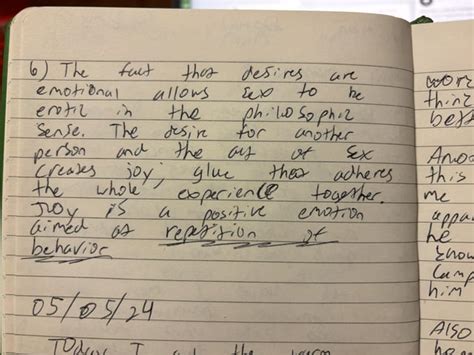 6) The fact that desires are
emotional allows sex to be
erotic in the philosophic
sense. The desire for another
person and the act of sex
creates joy; glue that adheres
the whole experience together.
Joy is a positive emotion
aimed at repetition of
behavior
05/05/24
Today I the warm
worl
thing
bett
Anot
this
me
appa
he
know
camp
him
Also